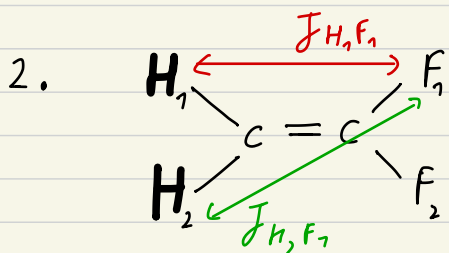 J H₁F₁
2. H₁ F₁
C = C
H₂ F₂
J H₂F₁